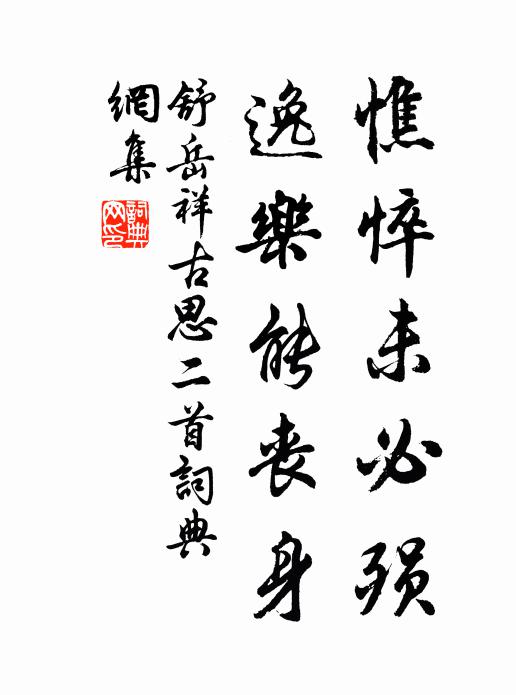 憔悴未必殞
逸樂能喪身
舒岳祥古思二首詞典
網集
詞典
网印